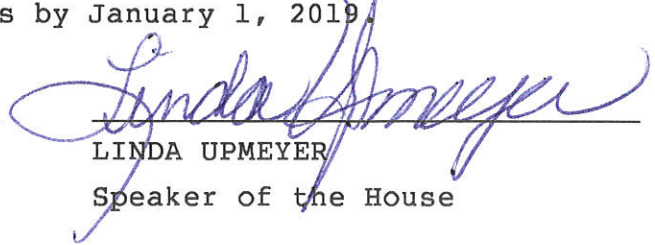 s by January 1, 2019.
Linda Upmeyer
LINDA UPMEYER
Speaker of the House